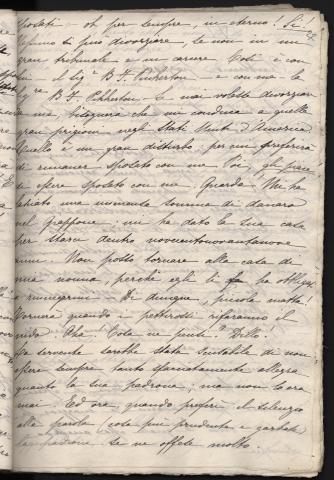 sposati – oh per sempre, in eterno! Si!
nessuno si puó divorziare, se non in un
gran tribunale e in un carcere. Cosi è con
il Sigr B. F. Pinkerton – e con me la
Sigra B. F. Pinkerton. Se mai volesse divorziar
me, bisognerà che mi conduca a quelle
gran prigioni negli Stati Uniti d'America
Quello è un gran disturbo; per cui preferirà
di rimaner sposato con me. Poi, gli piace
d'essere sposato con me. Guarda! Mi ha
lasciato una immensa somma di danaro
nel Giappone: mi ha dato la sua casa
per starci dentro novecentonovantanove
anni. Non posso tornare alla casa di
mia nonna, perchè egli li fa ha obbligati
a rinnegarmi. Di dunque, piccola matta!
Tornerà quando i pettirossi rifaranno il
nido. Aha! Cosa ne pensi? Dillo!
La servente sarebbe stata scusabile di non
essere sempre tanto sfrenatamente allegra
quanto la sua padrona; ma non lo era
mai. Ed ora, quando preferì il silenzio
alla parola, cosa più prudente e garbata
la padrona se ne offese molto.